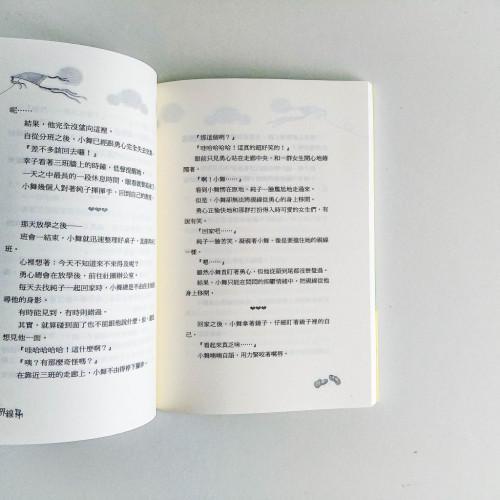 呃……
結果，他完全沒望向這裡。
自從分班之後，小舞已經跟勇心完全失去交集
『差不多該回去囉！』
幸子看著三班牆上的時鐘，低聲提醒她
一天之中最長的一段休息時間，眼看就要結束
小舞幾個人對著純子揮揮手，回到自己的教室
那天放學之後——
班會一結束，小舞就迅速整理好桌子，直奔向三
班。
心裡想著：今天不知道來不來得及呢？
勇心總會在放學後，前往社團辦公室，
每天去找純子一起回家時，小舞總是不由自主
尋他的身影。
有時能見到，有時則錯過。
其實，就算碰到面了也不能跟他說什麼，但，還是
想見他一面。
『哇哈哈哈哈！這什麼啊？』
『咦？有那麼奇怪嗎？』
在靠近三班的走廊上，小舞不由得停下腳步
『還這個啊？』
『哇哈哈哈哈！這真的超好笑的！』
眼前只見勇心站在走廊中央，和一群女生開心地嬉
鬧著。
『啊！小舞……』
看到小舞愣在原地，純子一臉尷尬地走過來。
但是，小舞卻無法將視線從勇心的身上移開。
勇心正愉快地和那群打扮得入時可愛的女生們，有
說有笑。
『回家吧……』
純子一臉苦笑，凝視著小舞，像是要擋住她的視線
一樣。
『嗯……』
雖然小舞直盯著勇心，但他從頭到尾都沒察覺過。
結果，小舞只能在悶悶的煩躁情緒中，把視線從他
身上移開。
回家之後，小舞拿著鏡子，仔細盯著鏡子裡的自
己。
『看起來真乏味……』
小舞喃喃自語，用力緊咬著嘴唇。